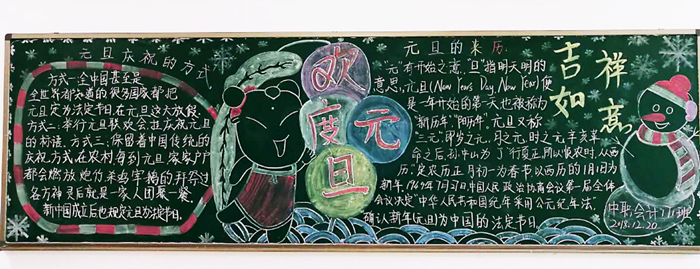 元旦庆祝的方式
方式一:全中国甚至是
全世界都知道的很多国家都把
元旦定为法定节日,在元旦这天放假
方式二:举行元旦联欢会,挂庆祝元旦
的标语,方式三:保留着中国传统的
庆祝方式,在农村每到元旦家家户户
都会燃放炮竹杀鸡宰鹅的拜祭过
各方神灵后就是一家人团聚一餐。
新中国成立后也规定元旦为法定节日。
欢度元旦
元旦的来历.
"元"有开始之意,"旦"指明天明的
意思,元旦(New Years Day, New Year)便
是一年开始的第一天也被称为
"新历年""阳历年"。元旦又称
"三元",即岁之元、月之元、时之元,辛亥革
命之后,孙中山为了"行夏正,所以顺农时,从西
历",定农历正月初一为春节,以西历的1月1日为
新年,1949年9月27日中国人民政治协商会议第一届全体
会议决定"中华人民共和国纪年采用公元纪年法"。
确认新年元旦为中国的法定节日。
吉祥如意
中职会计1班
2018.12.20